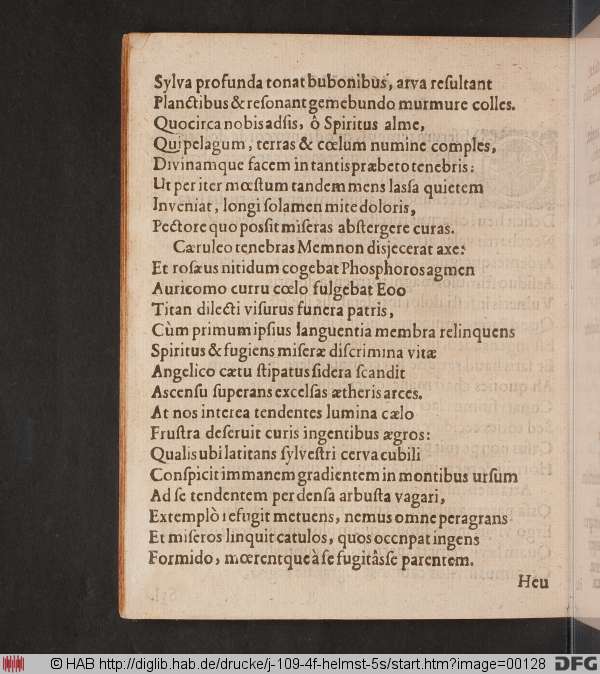 Sylva profunda tonat bubonibus, arva reſultant
Planctibus & reſonant gemebundo murmure colles.
Quocirca nobis adſis, ô Spiritus alme,
Qui pelagum, terras & cœlum numine comples,
Divinamque facem in tantis præbeto tenebris:
Ut per iter mœſtum tandem mens laſſa quietem
Inveniat, longi ſolamen mite doloris,
Pectore quo poſſit miſeras abſtergere curas.
Cæruleo tenebras Memnon disjecerat axe:
Et roſæus nitidum cogebat Phosphoros agmen
Auricomo curru cœlo fulgebat Eoo
Titan dilecti viſurus funera patris,
Cùm primum ipſius languentia membra relinquens
Spiritus & fugiens miſeræ diſcrimina vitæ
Angelico cætu ſtipatus ſidera ſcandit
Aſcenſu ſuperans excelſas ætheris arces.
At nos interea tendentes lumina cælo
Fruſtra deſeruit curis ingentibus ægros:
Qualis ubi latitans ſylveſtri cerva cubili
Conſpicit immanem gradientem in montibus urſum
Ad ſe tendentem per denſa arbuſta vagari,
Extemplò refugit metuens, nemus omne peragrans
Et miſeros linquit catulos, quos occnpat ingens
Formido, mœrentque à ſe fugitâsſe parentem.
Heu
© HAB http://diglib.hab.de/drucke/j-109-4f-helmst-5s/start.htm?image=00128
DFG